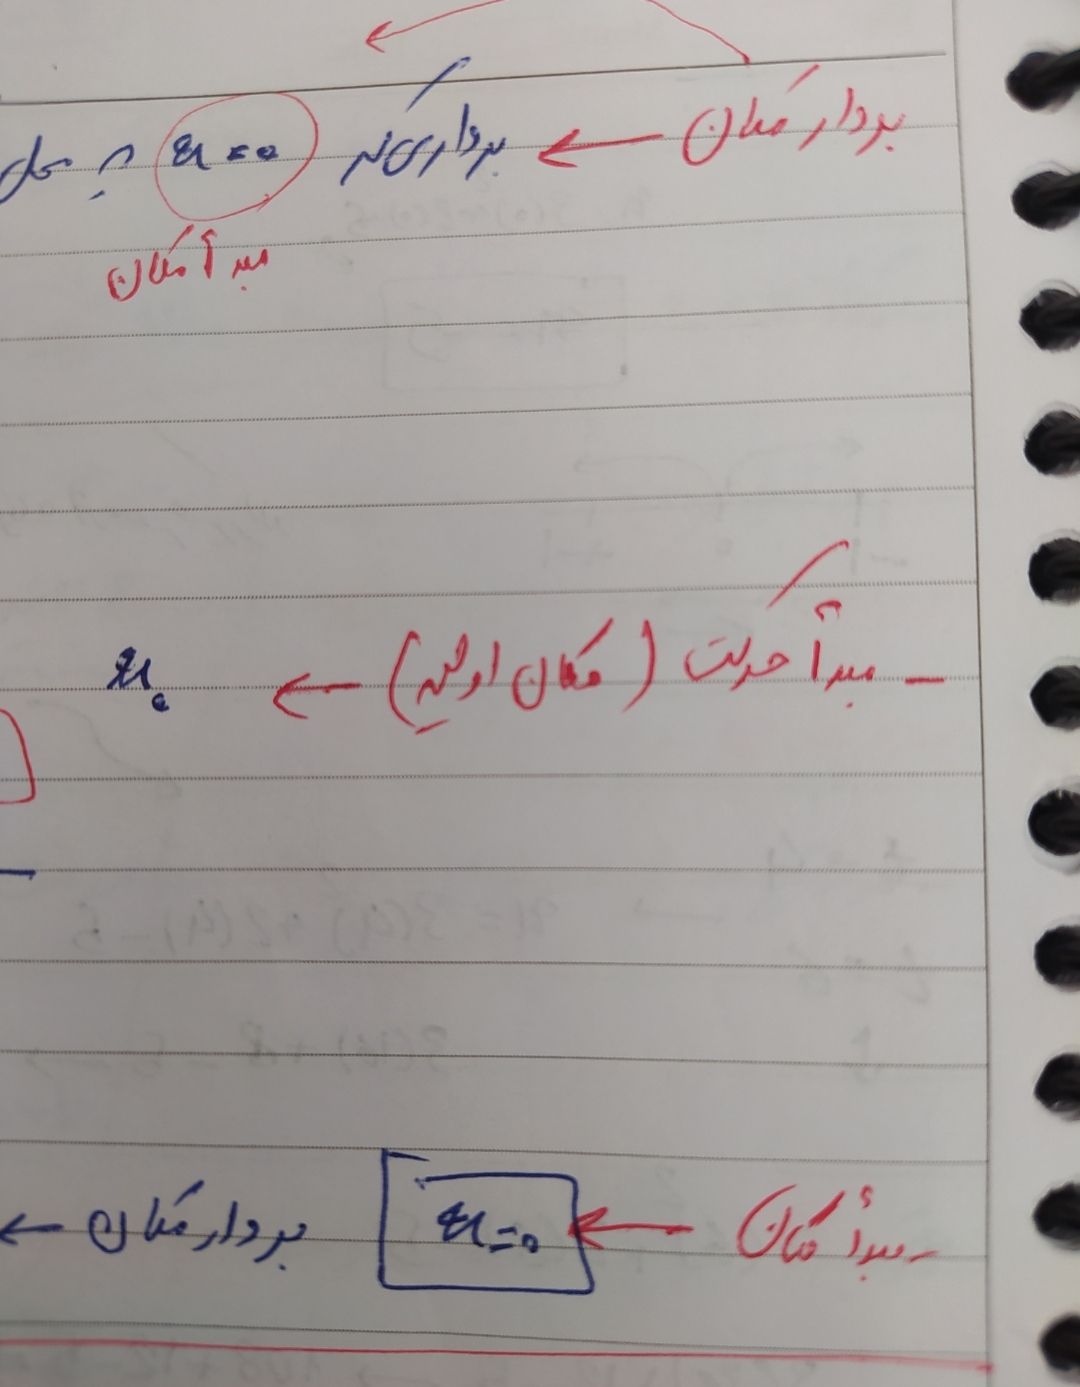 بردار مکان ← برداری که x=0 به محل
مبدأ مکان
– مبدأ حرکت (مکان اولیه) ← x₀
– مبدأ مکان ← x=0 بردار مکان ←